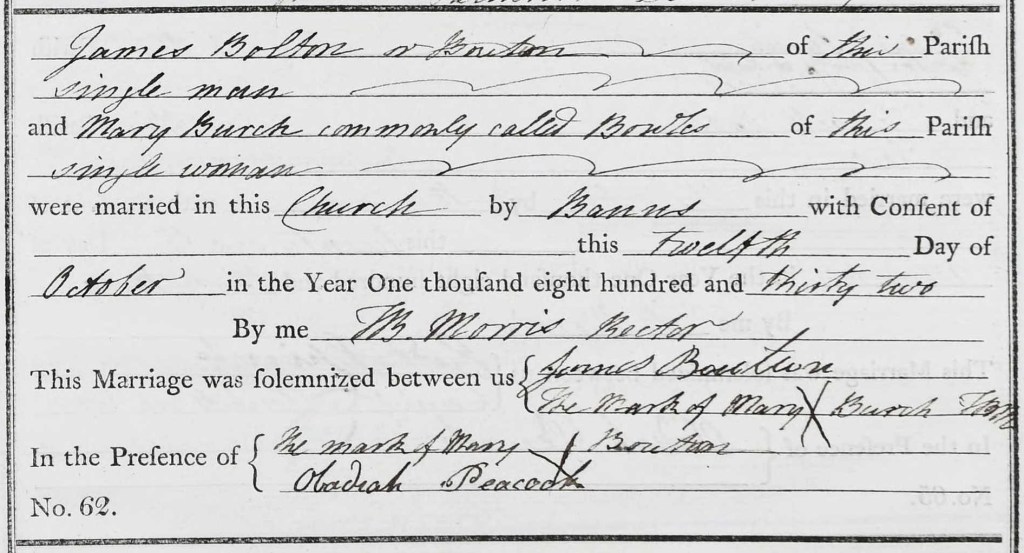 James Bolton or Bouton of this Pariſh
single man
and Mary Burch commonly called Bowles of this Pariſh
single woman
were married in this Church by Banns with Conſent of
this twelfth Day of
October in the Year One thouſand eight hundred and thirty two
By me TB Morris Rector
This Marriage was ſolemnized between us { James Boutton
The Mark of Mary X Burch
In the Preſence of { The mark of Mary X Bouton
Obadiah Peacock
No. 62.